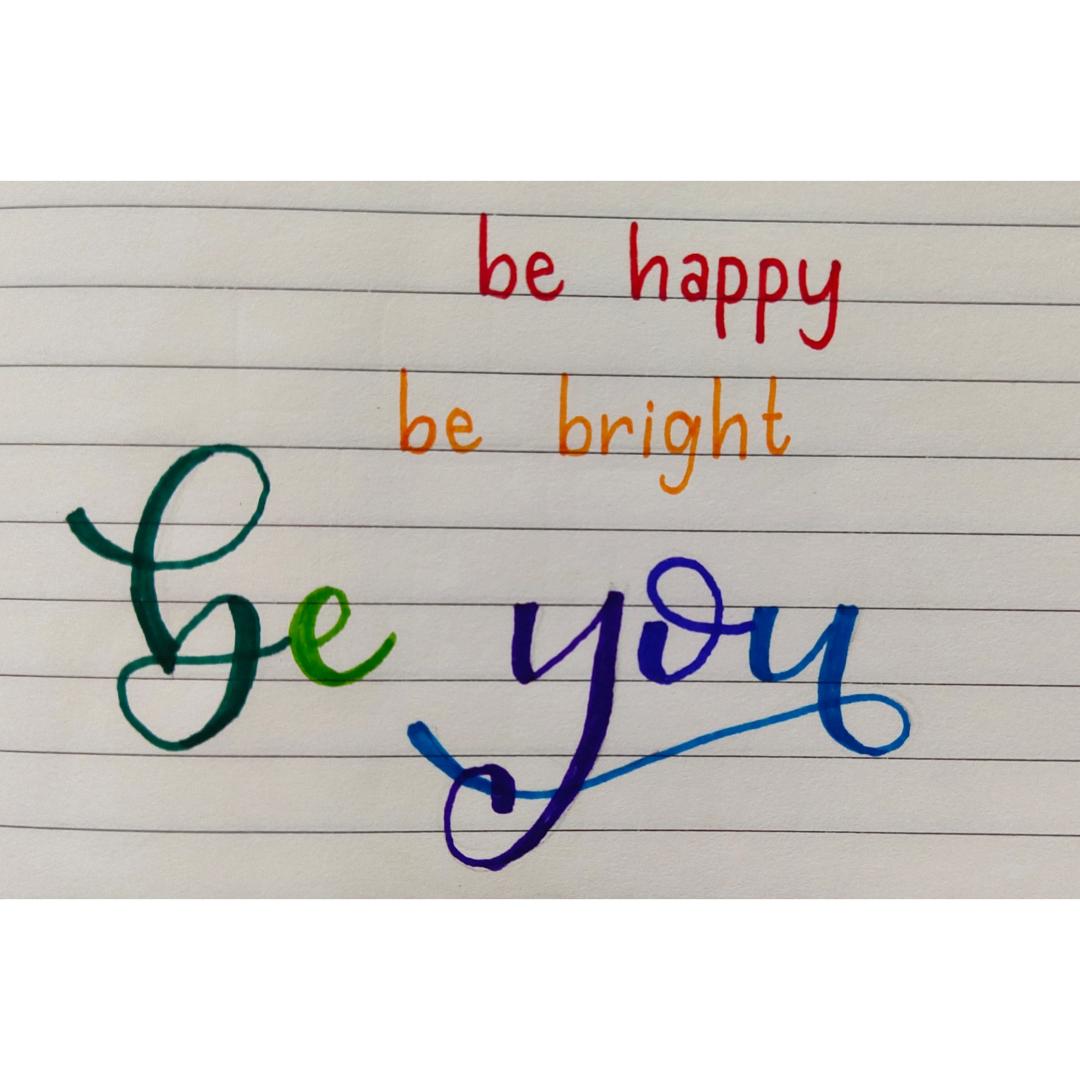 be happy
be bright
be you